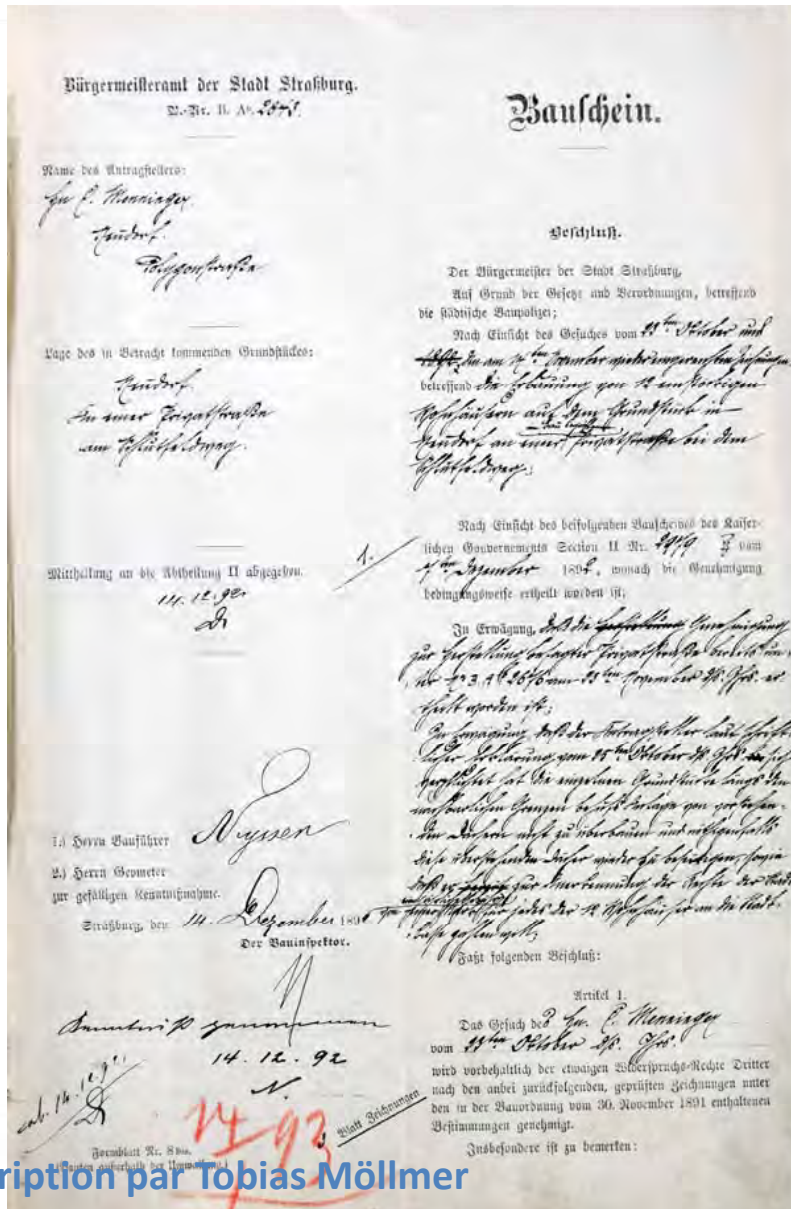 Bürgermeisteramt der Stadt Straßburg.
B.-Nr. II. Aᵇ. 2843.
Name des Antragstellers:
Hn E. Menninger
Neudorf.
Polygonstraße
Lage des in Betracht kommenden Grundstückes:
Neudorf.
An einer Privatstraße
am Schluthfeldweg.
Mittheilung an die Abtheilung II abgegeben.
14.12.92
1.) Herrn Bauführer Nyssen
2.) Herrn Geometer
zur gefälligen Kenntnißnahme.
Straßburg, den 14. Dezember 189
Der Bauinspektor.
Kenntniß genommen
14. 12. 92
N.
14.12.92
Formblatt Nr. 8 bis.
(Bauten außerhalb der Umwallung.)
Bauschein.
Beschluß.
Der Bürgermeister der Stadt Straßburg,
Auf Grund der Gesetze und Verordnungen, betreffend
die städtische Baupolizei;
Nach Einsicht des Gesuches vom 23ten Oktober und
die am ten November wieder eingereichten Zeichnungen
betreffend die Erbauung von 12 einstöckigen
Wohnhäusern auf dem Grundstück in
Neudorf an einer Privatstraße bei dem
Schluthfeldweg;
1. Nach Einsicht des beifolgenden Bauscheines des Kaiser-
lichen Gouvernements Section II Nr. vom
Dezember 1892, wonach die Genehmigung
bedingungsweise ertheilt worden ist;
In Erwägung, daß die Genehmigung
zur Herstellung besagter Privatstraße bereits un-
ter Nr 3. Aᵇ 2676 am 23ten November ds. Jhrs. er-
theilt worden ist;
In Erwägung, daß der Antragsteller laut schrift-
licher Erklärung vom 25ten Oktober ds. Jhrs. sich
verpflichtet hat die einzelnen Grundstücke längs den
nachbarlichen Grenzen behufs Anlage von vorstehen-
den Dächern nicht zu überbauen und nöthigenfalls
diese überstehenden Dächer wieder zu beseitigen, sowie
daß er zur Anerkennung der Rechte der Stadt
für jedes der 12 Wohnhäuser an die Stadt-
kasse zahlen will;
Faßt folgenden Beschluß:
Artikel 1.
Das Gesuch des Hn. E. Menninger
vom 23ten Oktober ds. Jhrs.
wird vorbehaltlich der etwaigen Widerspruchs-Rechte Dritter
nach den anbei zurückfolgenden, geprüften Zeichnungen unter
den in der Bauordnung vom 30. November 1891 enthaltenen
Bestimmungen genehmigt.
Insbesondere ist zu bemerken:
Blatt Zeichnungen
cription par Tobias Möllmer